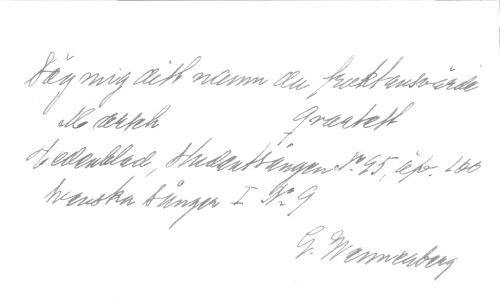 Säg mig ditt namn du fruktansvärde
Mörkh Qvartett
Hedenblad, Studentsången № 95, äp. 160
Svenska Sånger I № 9
G. Wennerberg